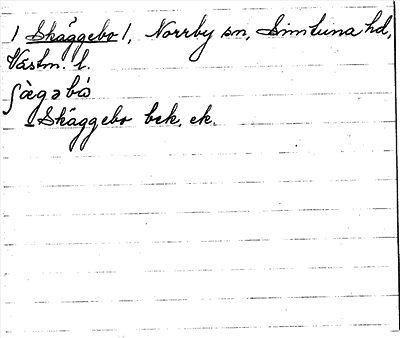 / Skäggebo /, Norrby sn, Simtuna hd,
Västm. l.
ʃægəbω
Skäggebo bek. ek.